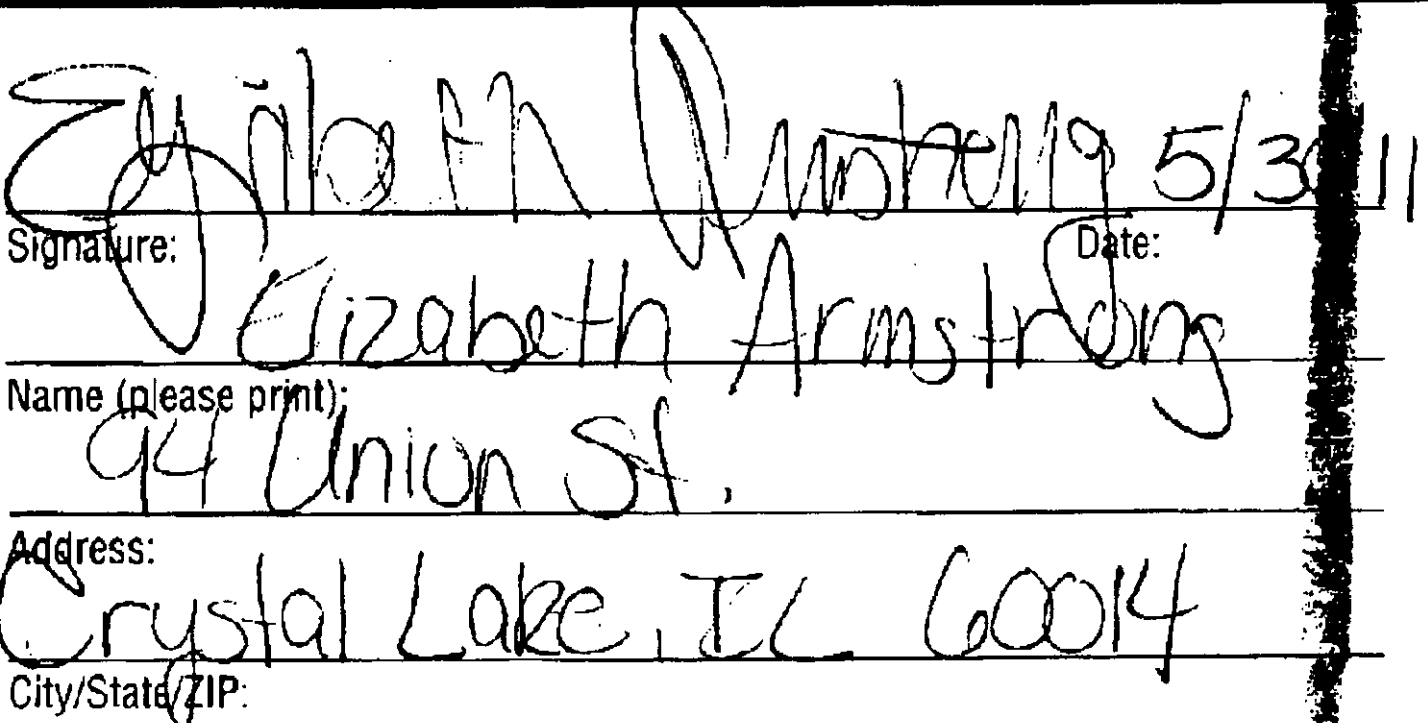 Elizabeth Armstrong 5/30/11
Signature: Date:
Elizabeth Armstrong
Name (please print):
94 Union St.
Address:
Crystal Lake, IL 60014
City/State/ZIP: